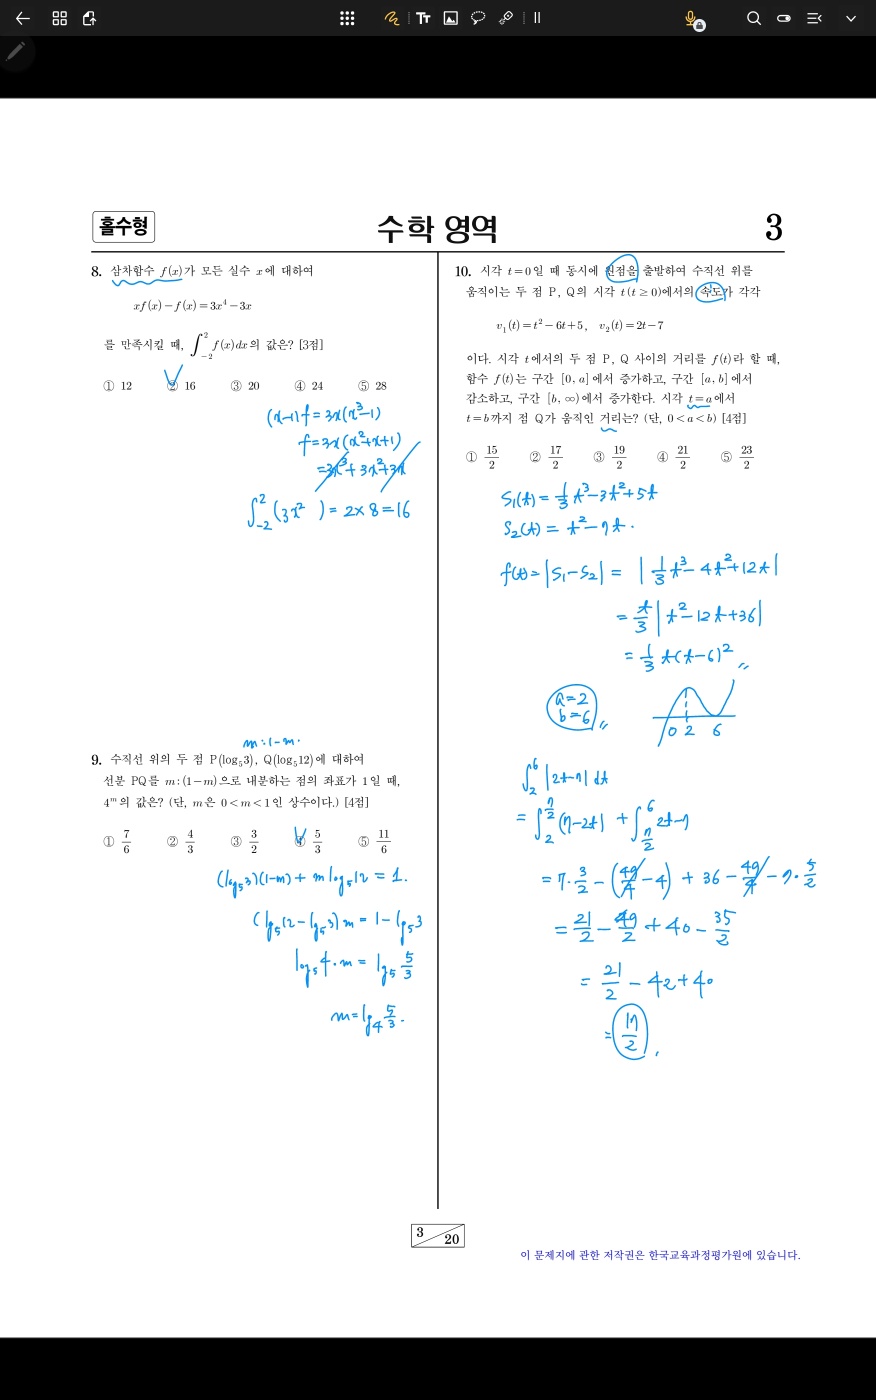 홀수형
수학 영역
3
8. 삼차함수 f(x)가 모든 실수 x에 대하여
xf(x)-f(x)=3x⁴-3x
를 만족시킬 때, ∫₋₂² f(x)dx의 값은? [3점]
① 12 ② 16 ③ 20 ④ 24 ⑤ 28
(x-1)f=3x(x³-1)
f=3x(x²+x+1)
=3x³+3x²+3x
∫₋₂² (3x² )=2×8=16
m:1-m.
9. 수직선 위의 두 점 P(log₅3), Q(log₅12)에 대하여
선분 PQ를 m:(1-m)으로 내분하는 점의 좌표가 1일 때,
4ᵐ의 값은? (단, m은 0<m<1인 상수이다.) [4점]
① 7/6 ② 4/3 ③ 3/2 ④ 5/3 ⑤ 11/6
(log₅3)(1-m)+m log₅12=1.
(log₅12-log₅3)m=1-log₅3
log₅4·m=log₅ 5/3
m=log₄ 5/3.
10. 시각 t=0일 때 동시에 원점을 출발하여 수직선 위를
움직이는 두 점 P, Q의 시각 t(t≥0)에서의 속도가 각각
v₁(t)=t²-6t+5, v₂(t)=2t-7
이다. 시각 t에서의 두 점 P, Q 사이의 거리를 f(t)라 할 때,
함수 f(t)는 구간 [0, a]에서 증가하고, 구간 [a, b]에서
감소하고, 구간 [b, ∞)에서 증가한다. 시각 t=a에서
t=b까지 점 Q가 움직인 거리는? (단, 0<a<b) [4점]
① 15/2 ② 17/2 ③ 19/2 ④ 21/2 ⑤ 23/2
S₁(t)=1/3 t³-3t²+5t
S₂(t)=t²-7t.
f(t)=|S₁-S₂|=|1/3 t³-4t²+12t|
=t/3|t²-12t+36|
=1/3 t(t-6)²
a=2
b=6
0 2 6
∫₂⁶ |2t-7| dt
=∫₂^(7/2) (7-2t) + ∫_(7/2)^6 2t-7
=7·3/2-(49/4-4)+36-49/4-7·5/2
=21/2-49/2+40-35/2
=21/2-42+40
=17/2
3
20
이 문제지에 관한 저작권은 한국교육과정평가원에 있습니다.